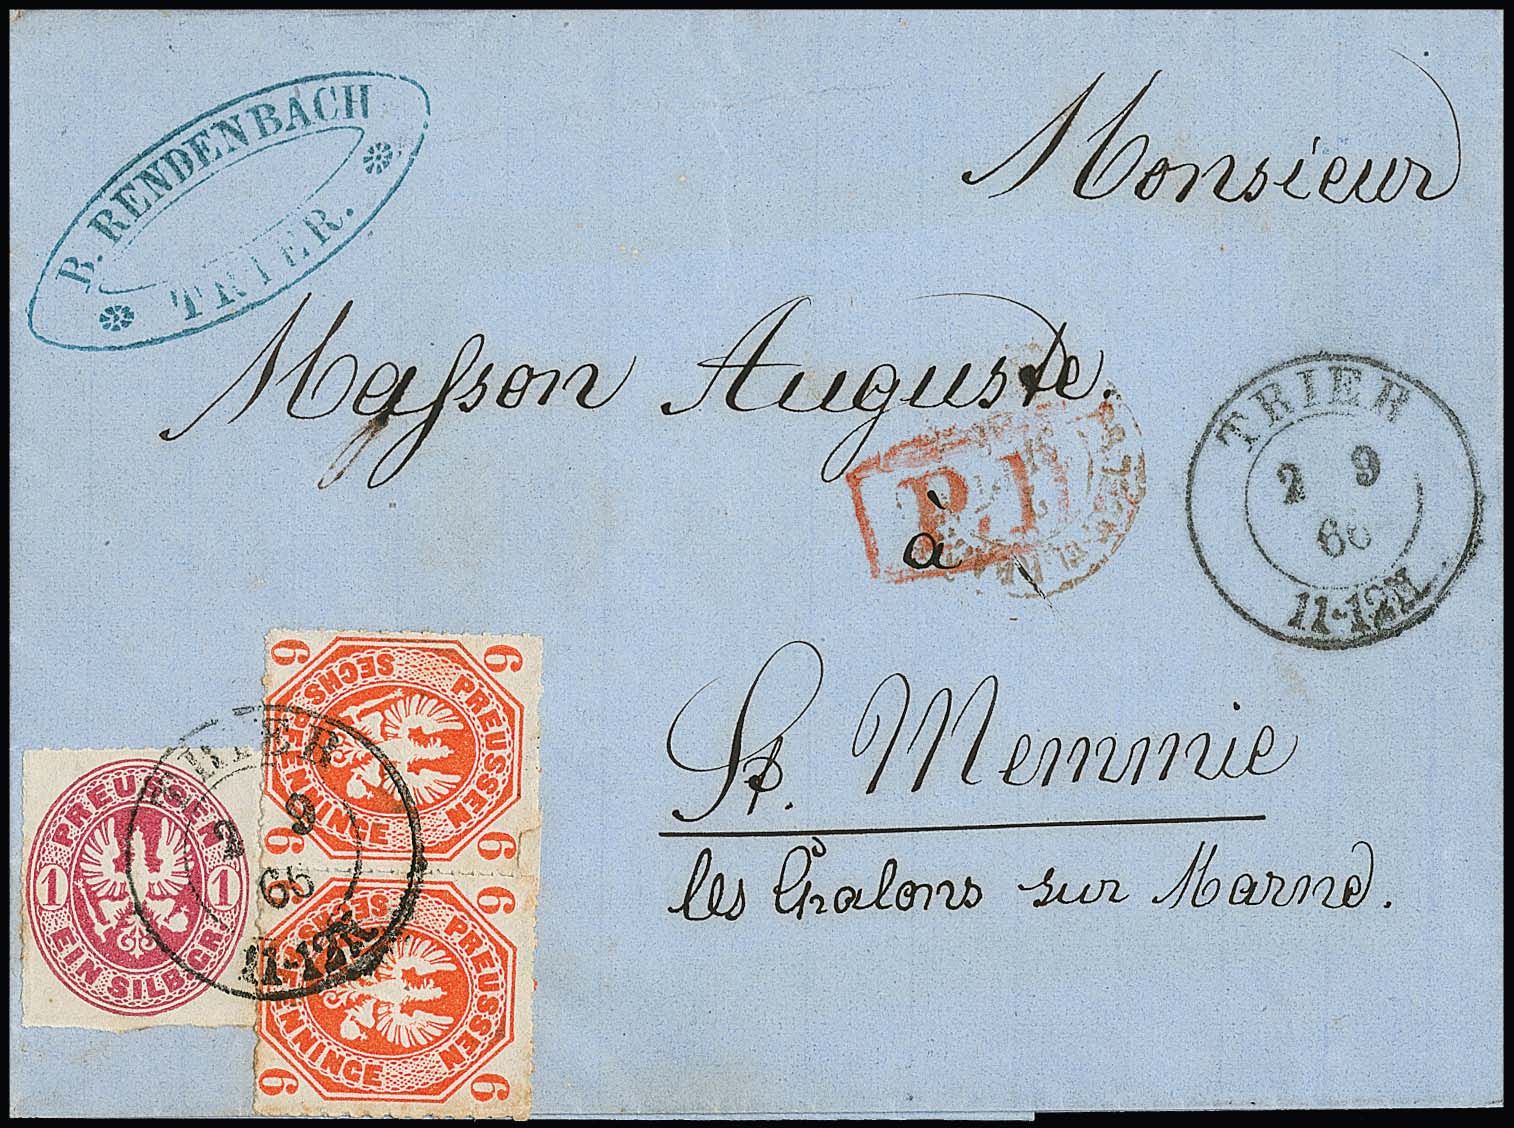 B. RENDENBACH
TRIER.
Monsieur
Masson Auguste.
P.D
à
TRIER
2 9
66
11-12N
St. Memmie
les Chalons sur Marne.
PREUSSEN
1 1
EIN SILB.GR.
6 6
PREUSSEN
SECHS PFENNINGE
6 6
6 6
PREUSSEN
SECHS PFENNINGE
6 6
TRIER
2 9
66
11-12N